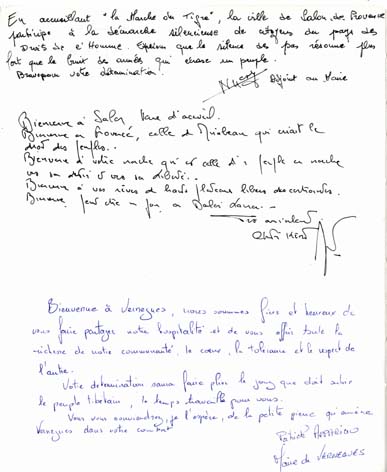 En accueillant "la Marche du Tigre", la ville de Salon de Provence
participe à la démarche silencieuse de citoyens du pays des
Droits de l'Homme. Espérons que le silence sera pas résonne plus
fort que le bruit des armées qui écrase un peuple.
Bravo pour votre détermination.
Adjoint au Maire
Bienvenue à Salon, Terre d'accueil.
Bienvenue en Provence, celle de Mirabeau qui criait le
droit des peuples..
Bienvenue à votre marche qui est celle d'1 peuple en marche
vers sa et vers sa liberté..
Bienvenue à vos rêves de hauts plateaux libres
Bienvenue peut être 1 jour au Dalaï Lama.
Très amicalement
Bienvenue à Vernègues, nous sommes fiers et heureux de
vous faire partager notre hospitalité et de vous offrir toute la
richesse de notre communauté, le cœur, la tolérance et le respect de
l'autre.
Votre détermination saura faire plier le joug que doit subir
le peuple tibétain, le temps travaille pour vous.
Vous vous souviendrez, je l'espère, de la petite pierre qu'amène
Vernègues dans votre combat
Patrick
Maire de VERNEGUES